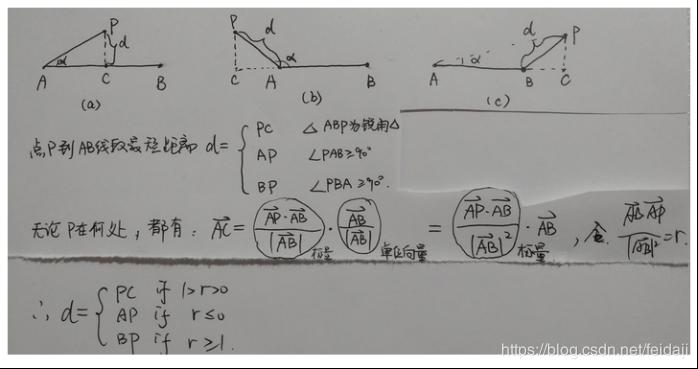 P d α A C B
P d α C A B
d P α A B C
(a) (b) (c)
点P到AB线段最短距离 d= { PC △ABP为锐角△
AP ∠PAB≥90°
BP ∠PBA≥90°.
无论P在何处，都有： AC→ = (AP→·AB→)/|AB→| 标量 · AB→/|AB→| 单位向量 = (AP→·AB→)/|AB→|² 标量 · AB→ ，令 (AB→·AP→)/|AB→|² = r.
∴ d= { PC if 1>r>0
AP if r≤0
BP if r≥1.
https://blog.csdn.net/feidaji